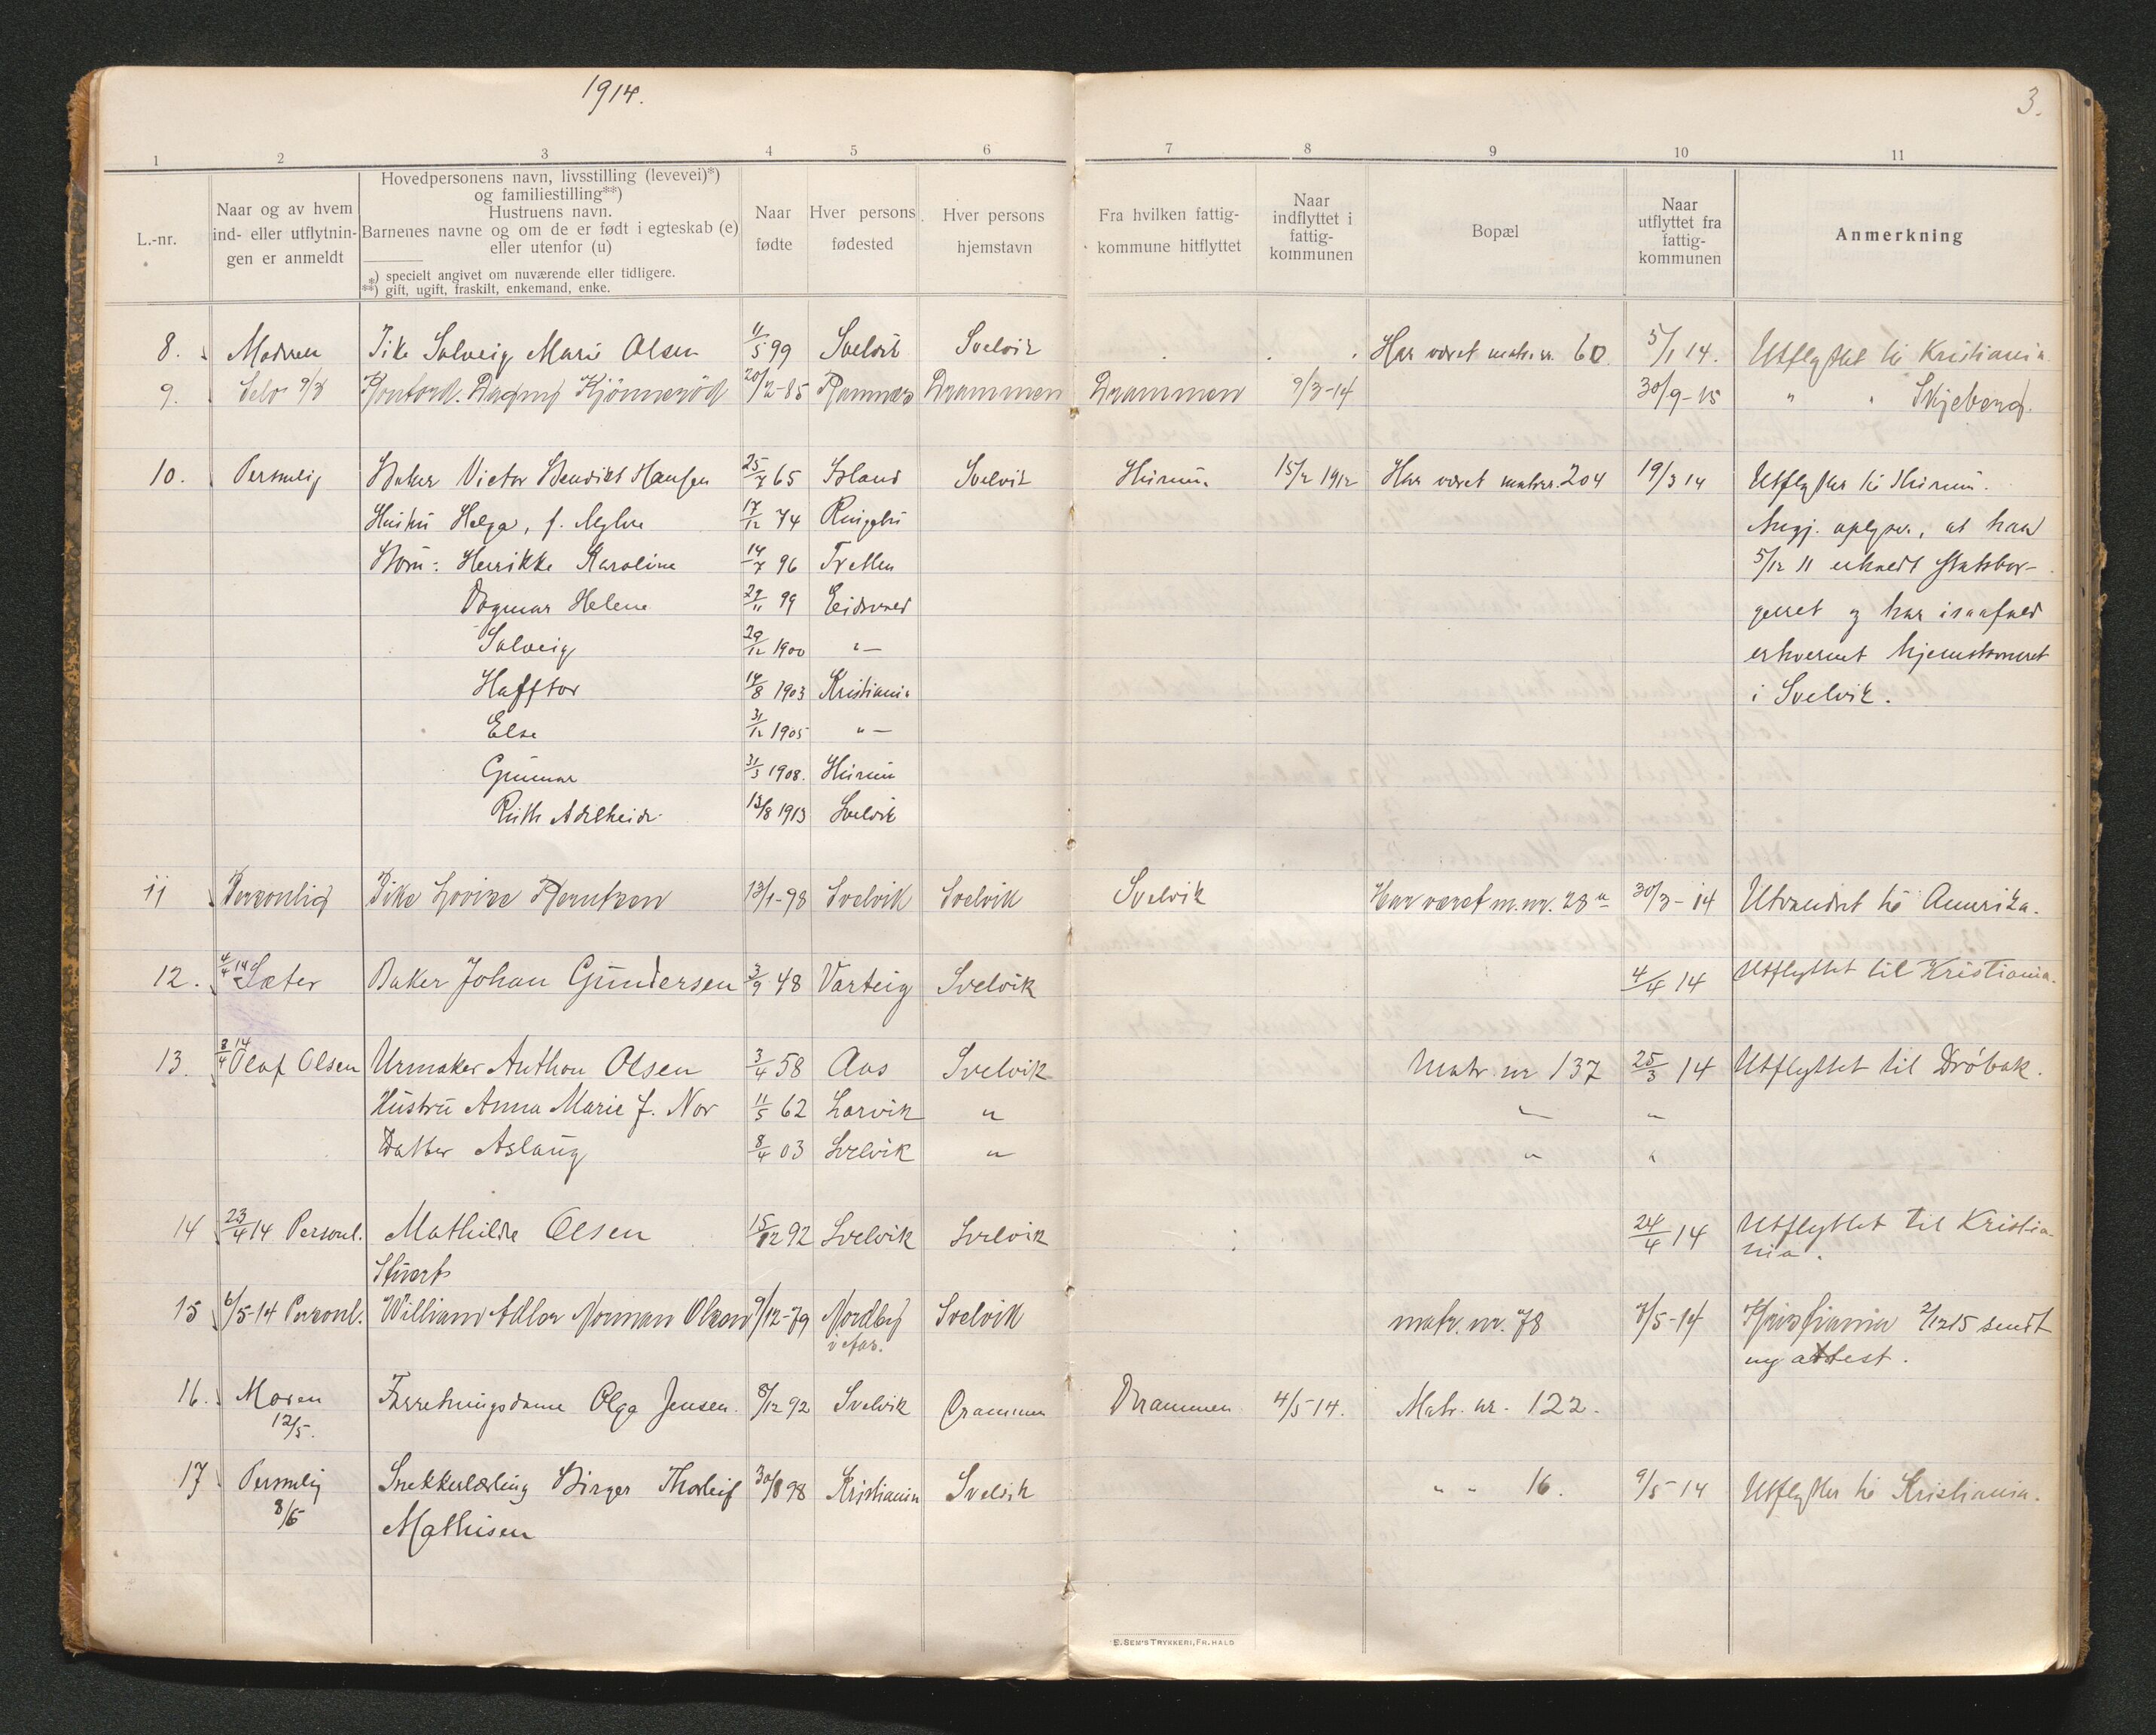 1914.
3.
1 2 3 4 5 6 7 8 9 10 11
L.-nr.
Naar og av hvem
ind- eller utflytnin-
gen er anmeldt
Hovedpersonens navn, livsstilling (levevei)*)
og familiestilling**)
Hustruens navn.
Barnenes navne og om de er født i egteskab (e)
eller utenfor (u)
*) specielt angivet om nuværende eller tidligere.
**) gift, ugift, fraskilt, enkemand, enke.
Naar
fødte
Hver persons
fødested
Hver persons
hjemstavn
Fra hvilken fattig-
kommune hitflyttet
Naar
indflyttet i
fattig-
kommunen
Bopæl
Naar
utflyttet fra
fattig-
kommunen
Anmerkning
8. Modren Pike Solveig Marie Olsen 11/5 99 Svelvik Svelvik Har været matr. nr. 60 5/1 14. Utflyttet til Kristiania
9. Selv 9/3 Kontord. Dagny Kjønnerød 20/2-85 Ramnæs Drammen Drammen 9/3-14 30/9-15 " " Skjeberg.
10. Personlig Baker Victor Bendikt Hansen 25/7 65 Island Svelvik Hurum 15/2 1912 Har været matr. nr. 204 19/3 14 Utflyttet til Hurum.
Hustru Helga, f. 17/12 74 Ringebu Angj. oplyser, at han
Børn: Henrikke Karoline 14/7 96 Tretten 5/12 11 erholdt statsbor-
Dagmar Helene 29/11 99 Eidsvold gerret og har isaafald
Solveig 29/12 1900 "- erhvervet hjemstavnsret
Hafftor 14/8 1903 Kristiania i Svelvik.
Else 31/12 1905 "-
Gunnar 31/3 1908. Hurum
Ruth Adelheid 13/8 1913 Svelvik
11 Personlig Pike Lovise Berntsen 13/1-98 Svelvik Svelvik Svelvik Har været m. nr. 28 a 30/3-14 Utvandret til Amerika.
12. 4/4 14 Sæter Baker Johan Gundersen 3/9 48 Varteig Svelvik 4/4 14 Utflyttet til Kristiania.
13. 8/4 14 Olaf Olsen Urmaker Anthon Olsen 3/4 58 Aas Svelvik Matr. nr 137 25/3 14 Utflyttet til Drøbak.
Hustru Anna Marie f. Nor 11/5 62 Larvik " " "
Datter Aslaug 8/4 03 Svelvik " " "
14 23/4 14 Personl. Mathilde Olsen 15/12 92 Svelvik Svelvik 24/4 14 Utflyttet til Kristia-
nia.
Stuert
15 6/5-14 Personl. William Adler Norman Olsen 9/12-79 Nordby Svelvik matr. nr. 78 7/5-14 Kristiania 2/12 15 sendt
i Aas. ny attest.
16. Moren Forretningsdame Olga Jensen. 8/12 92 Svelvik Drammen Drammen 4/5-14. Matr. nr. 122.
12/5.
17 Personlig Snekkerlærling Birger Thorleif 30/8 98 Kristiania Svelvik " " 16. 9/5-14 Utflyttet til Kristiania.
8/5 Mathisen
E. SEM'S TRYKKERI, FR.HALD